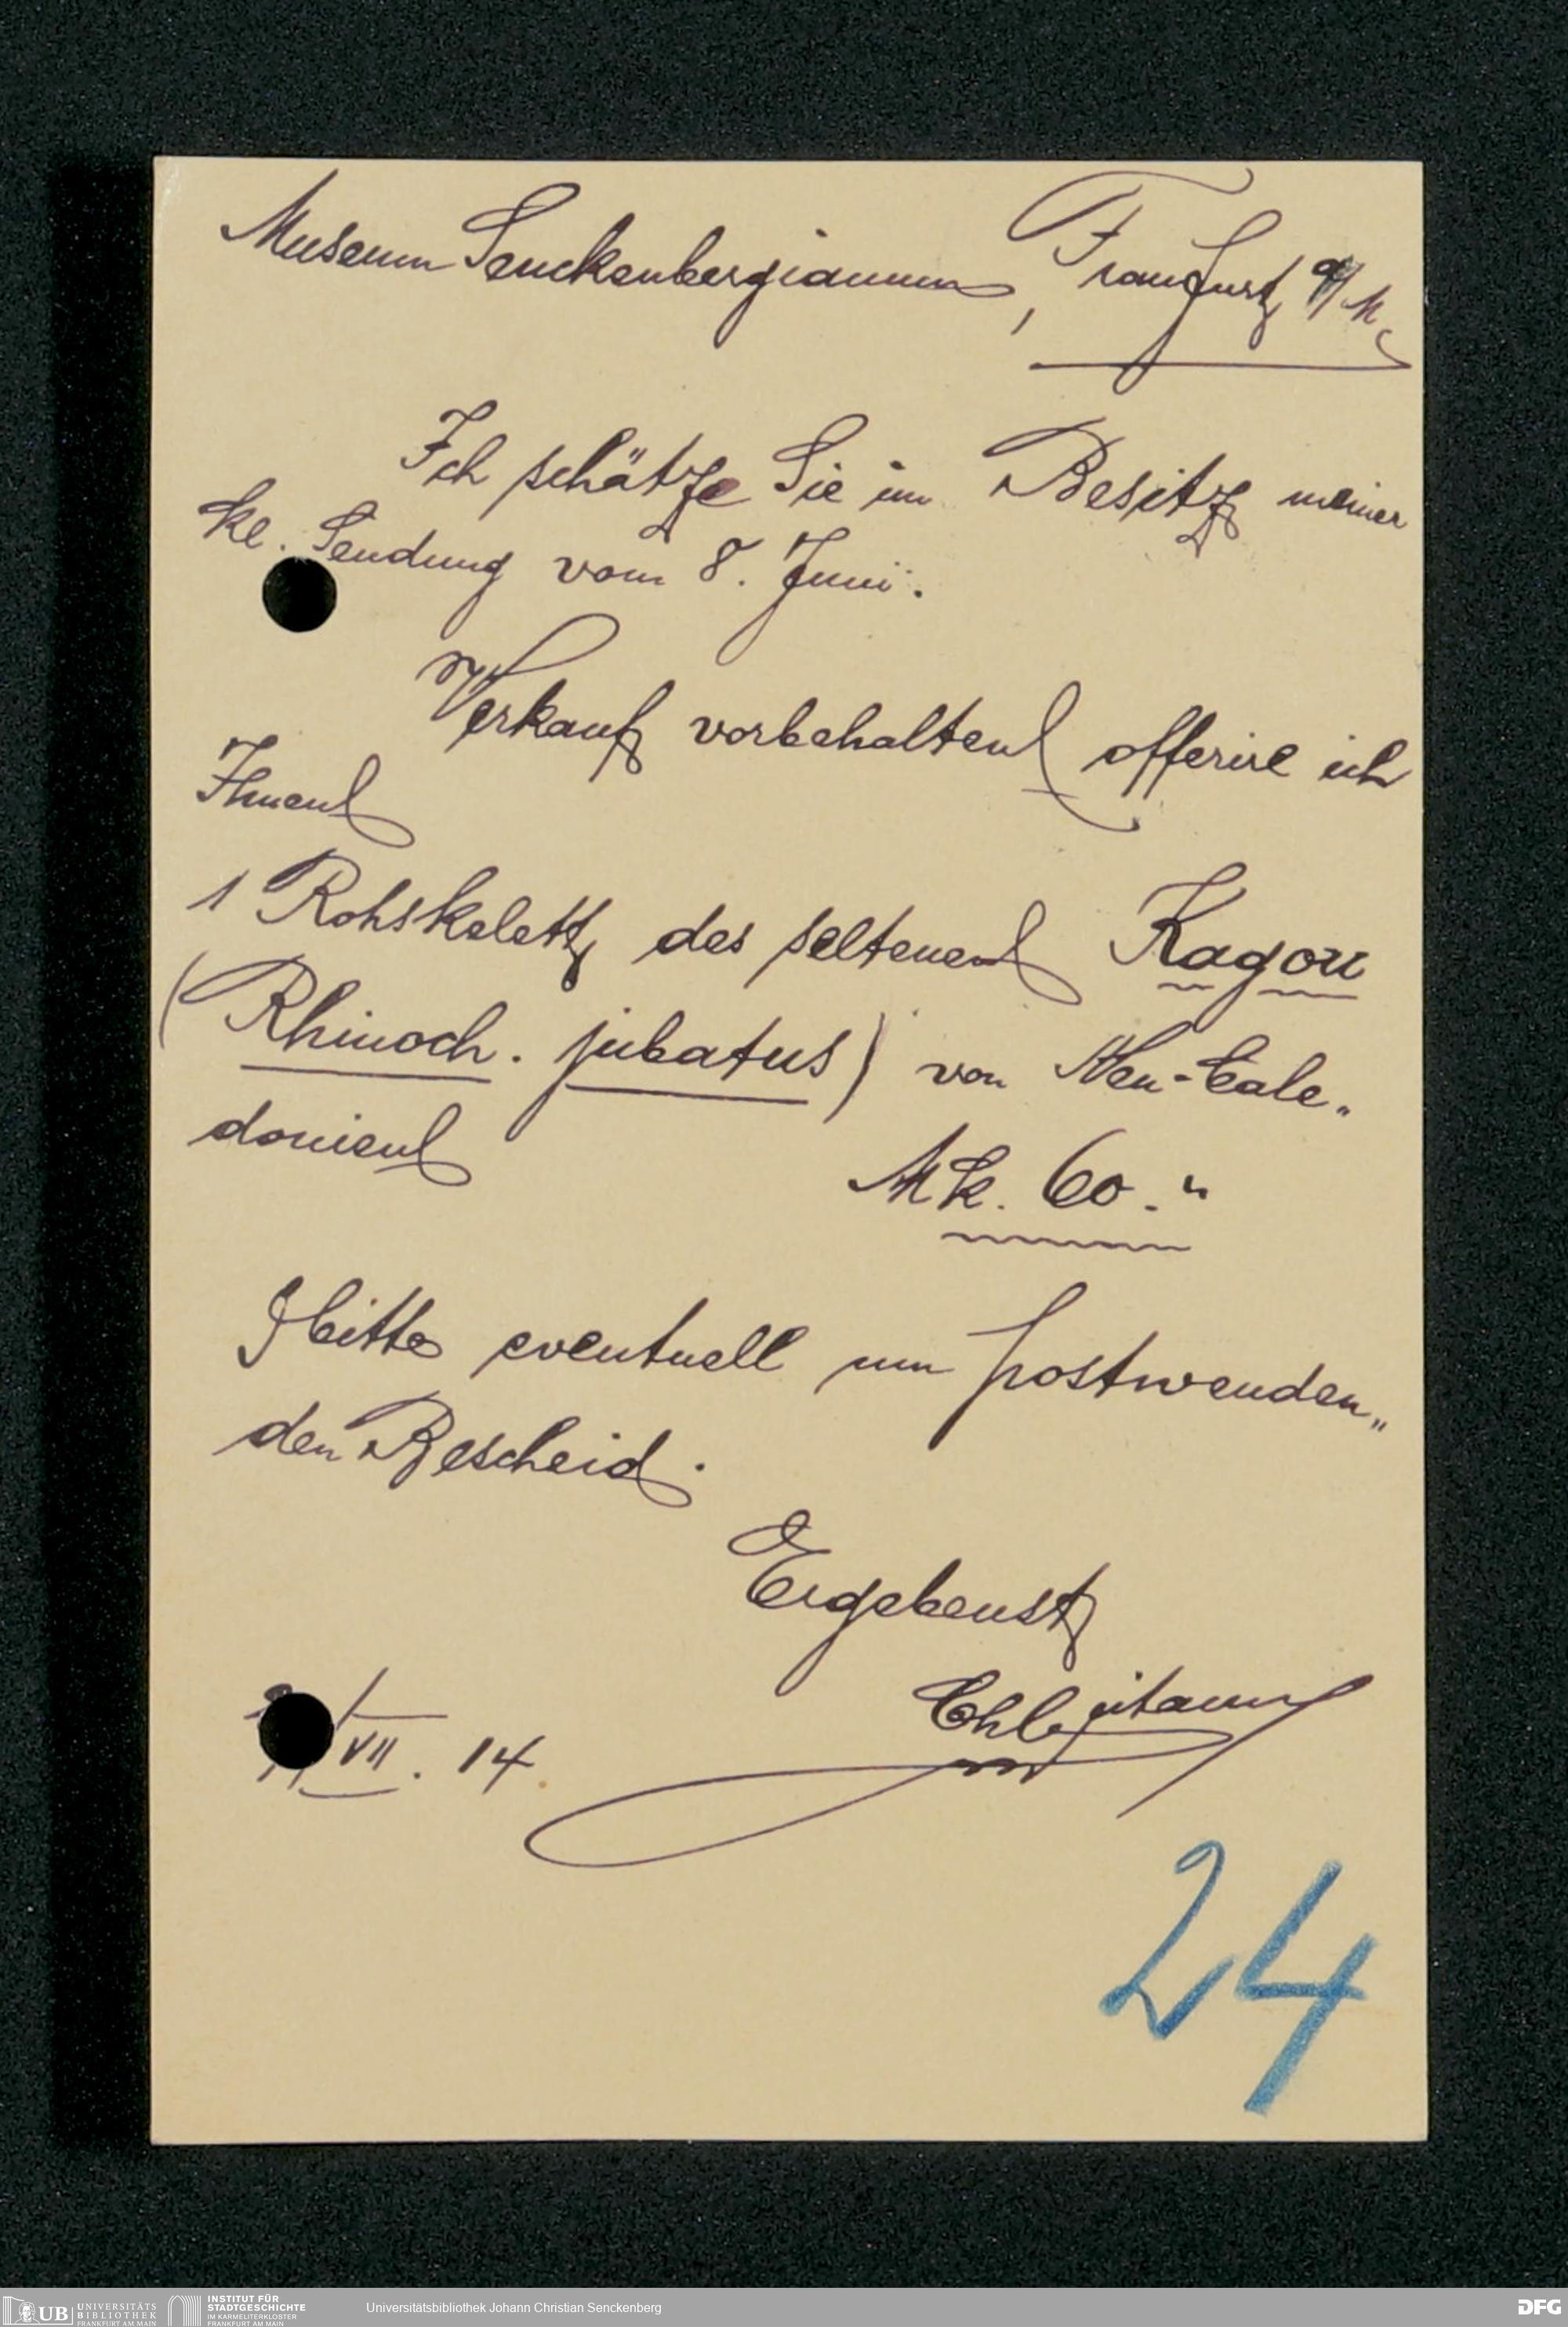 Museum Senckenbergianum, Frankfurt a/M.
Ich schätze Sie im Besitz meiner
kl. Sendung vom 8. Juni.
Verkauf vorbehalten offerire ich
Ihnen
1 Rohskelett des seltenen Kagou
(Rhinoch. jubatus) von Neu-Cale„
donien
Mk. 60.“
Bitte eventuell um postwenden„
den Bescheid.
Ergebenst
VII. 14.
24
UB UNIVERSITÄTS
BIBLIOTHEK
FRANKFURT AM MAIN
INSTITUT FÜR
STADTGESCHICHTE
IM KARMELITERKLOSTER
FRANKFURT AM MAIN
Universitätsbibliothek Johann Christian Senckenberg
DFG